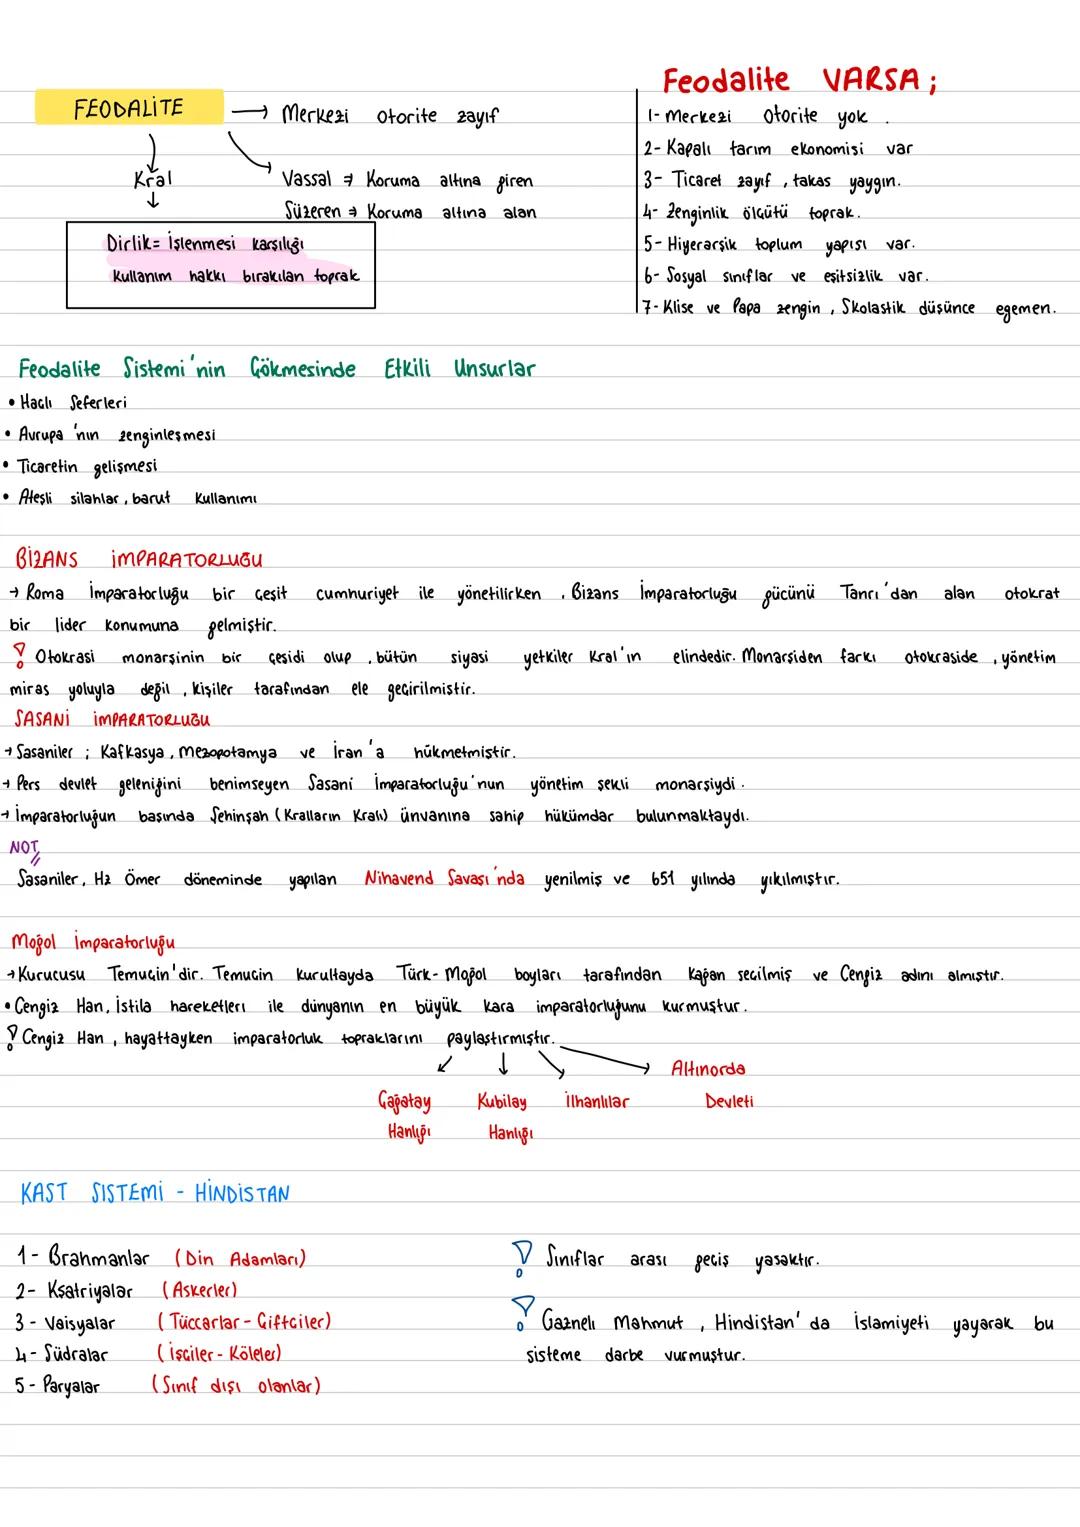 FEODALİTE → Merkezi otorite zayıf
Kral
Vassal → Koruma altına giren
Süzeren → Koruma altına alan
Dirlik= İşlenmesi karşılığı
Kullanım hakkı bırakılan toprak
Feodalite VARSA;
1- Merkezi otorite yok.
2- Kapalı tarım ekonomisi var
3- Ticaret zayıf, takas yaygın.
4- Zenginlik ölçütü toprak.
5- Hiyerarşik toplum yapısı var.
6- Sosyal sınıflar ve eşitsizlik var.
7- Klise ve Papa zengin, Skolastik düşünce egemen.
Feodalite Sistemi'nin Çökmesinde Etkili Unsurlar
• Haçlı Seferleri
• Avrupa'nın zenginleşmesi
• Ticaretin gelişmesi
• Ateşli silahlar, barut kullanımı
BİZANS İMPARATORLUĞU
→ Roma İmparatorluğu bir çeşit cumhuriyet ile yönetilirken, Bizans İmparatorluğu gücünü Tanrı'dan alan otokrat
bir lider konumuna gelmiştir.
! Otokrasi monarşinin bir çeşidi olup, bütün siyasi yetkiler Kral'ın elindedir. Monarşiden farkı otokraside, yönetim
miras yoluyla değil, kişiler tarafından ele geçirilmiştir.
SASANİ İMPARATORLUĞU
→ Sasaniler; Kafkasya, Mezopotamya ve İran'a hükmetmiştir.
→ Pers devlet geleniğini benimseyen Sasani İmparatorluğu'nun yönetim şekli monarşiydi.
→ İmparatorluğun başında Şehinşah (Kralların Kralı) ünvanına sahip hükümdar bulunmaktaydı.
NOT
Sasaniler, Hz Ömer döneminde yapılan Nihavend Savaşı'nda yenilmiş ve 651 yılında yıkılmıştır.
Moğol İmparatorluğu
→ Kurucusu Temuçin'dir. Temuçin kurultayda Türk-Moğol boyları tarafından Kağan seçilmiş ve Cengiz adını almıştır.
• Cengiz Han, İstila hareketleri ile dünyanın en büyük kara imparatorluğunu kurmuştur.
! Cengiz Han, hayattayken imparatorluk topraklarını paylaştırmıştır.
Çağatay Hanlığı
Kubilay Hanlığı
İlhanlılar
Altınorda Devleti
KAST SİSTEMİ - HİNDİSTAN
1- Brahmanlar (Din Adamları)
2- Kşatriyalar (Askerler)
3- Vaisyalar (Tüccarlar - Çiftçiler)
4- Südralar (İşçiler - Köleler)
5- Paryalar (Sınıf dışı olanlar)
! Sınıflar arası geçiş yasaktır.
! Gazneli Mahmut, Hindistan'da İslamiyeti yayarak bu
sisteme darbe vurmuştur.